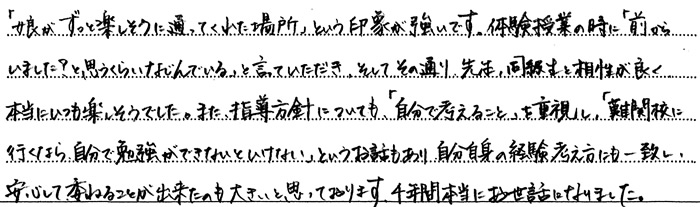 「娘がずっと楽しそうに通ってくれた場所」という印象が強いです。体験授業の時に「前から
いました？と思うくらいなじんでいる」と言っていただき、そしてその通り先生、同級生と相性が良く
本当にいつも楽しそうでした。また、指導方針についても、「自分で考えること」を重視し、「難関校に
行くなら自分で勉強ができないといけない」というお話もあり自分自身の経験、考え方にも一致し、
安心して委ねることが出来たのも大きいと思っております。4年間本当にお世話になりました。